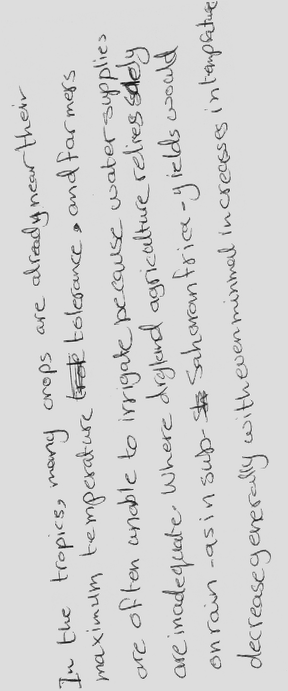 In the tropics, many crops are already near their
maximum temperature tolerance, and farmers
are often unable to irrigate because water supplies
are inadequate. Where dryland agriculture relies solely
on rain - as in sub- Saharan frica - yields would
decrease generally with even minimal increases in temperature